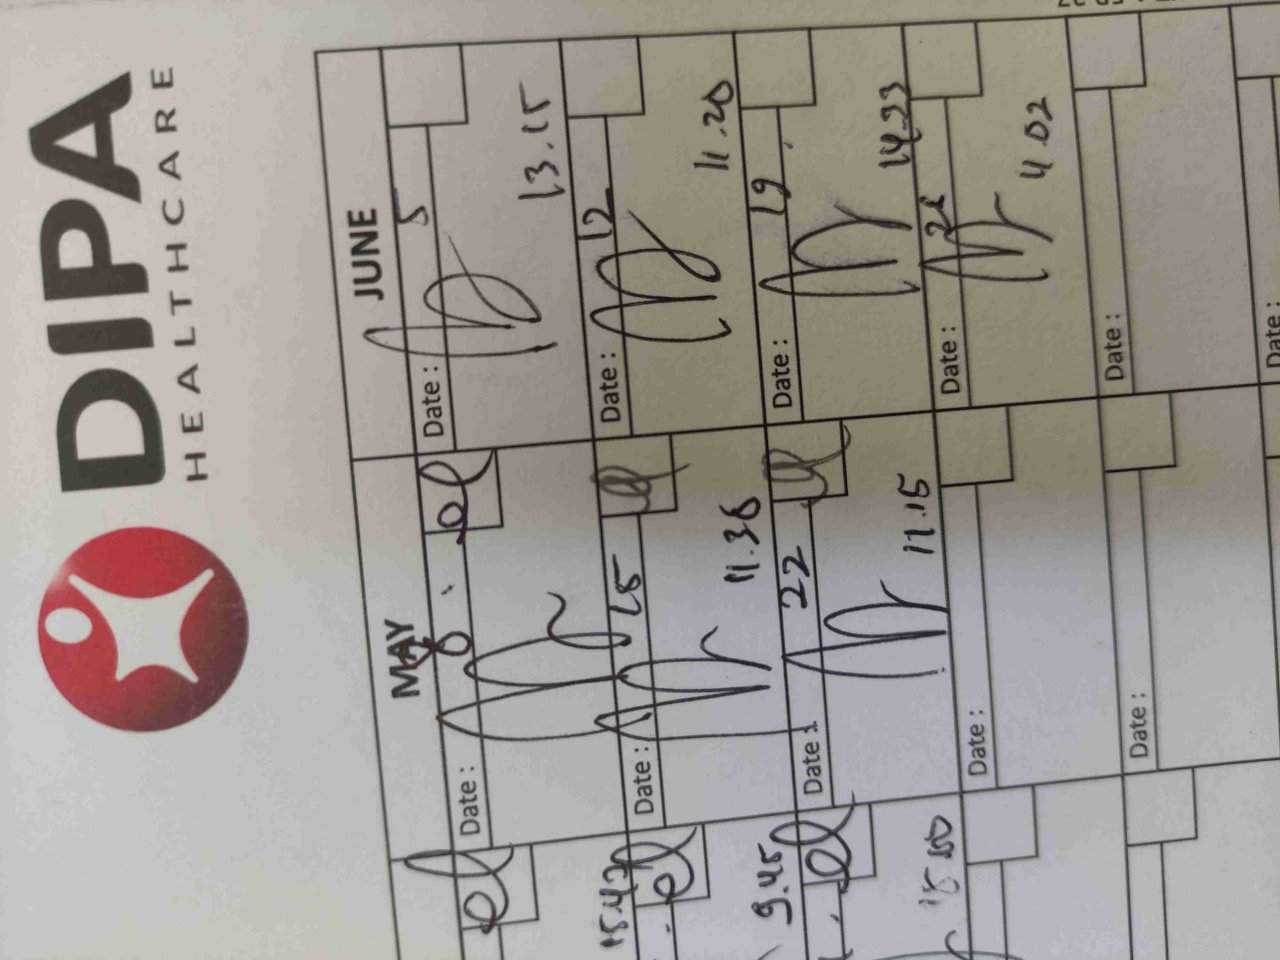 DIPA
HEALTHCARE
MAY
JUNE
Date: 8
Date: 5
15.47
13.15
Date: 15
Date: 12
9.45
11.38
11.20
Date: 22
Date: 19
15.00
11.15
14.33
Date:
Date: 26
11.02
Date:
Date:
Date: